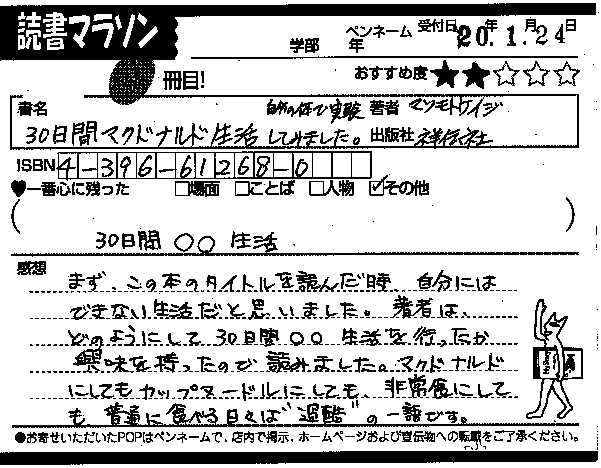 読書マラソン
学部 年 ペンネーム 受付日 20年1月24日
冊目! おすすめ度 ★★☆☆☆
書名 自分の体で実験 著者 マツモトケイジ
30日間マクドナルド生活してみました。 出版社 祥伝社
ISBN 4-396-61268-0
♥一番心に残った □場面 □ことば □人物 ☑その他
( )
30日間 ○○ 生活
感想
まず、この本のタイトルを読んだ時、自分には
できない生活だと思いました。著者は、
どのようにして 30日間 ○○ 生活を行ったか
興味を持ったので 読みました。マクドナルド
にしてもカップヌードルにしても、非常食にして
も 普通に食べる日々は"過酷"の一語です。
●お寄せいただいたPOPはペンネームで、店内で掲示、ホームページおよび宣伝物への転載をご了承ください。